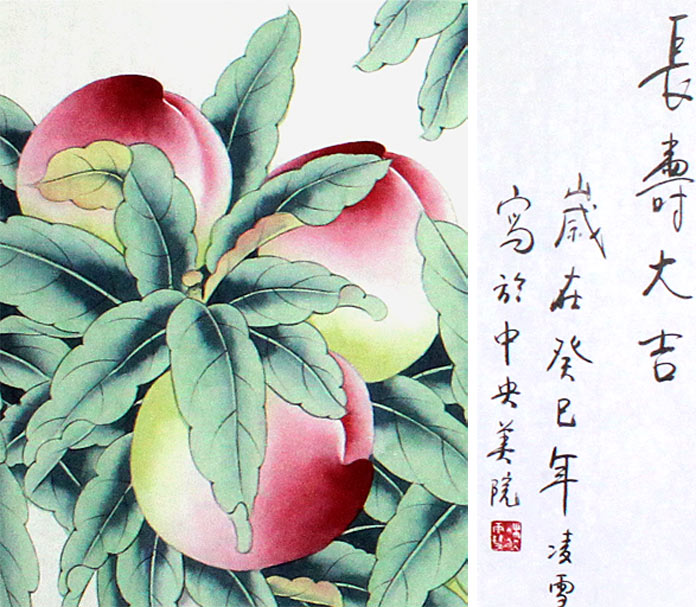 長壽大吉
歲在癸巳年凌雪
寫於中央美院